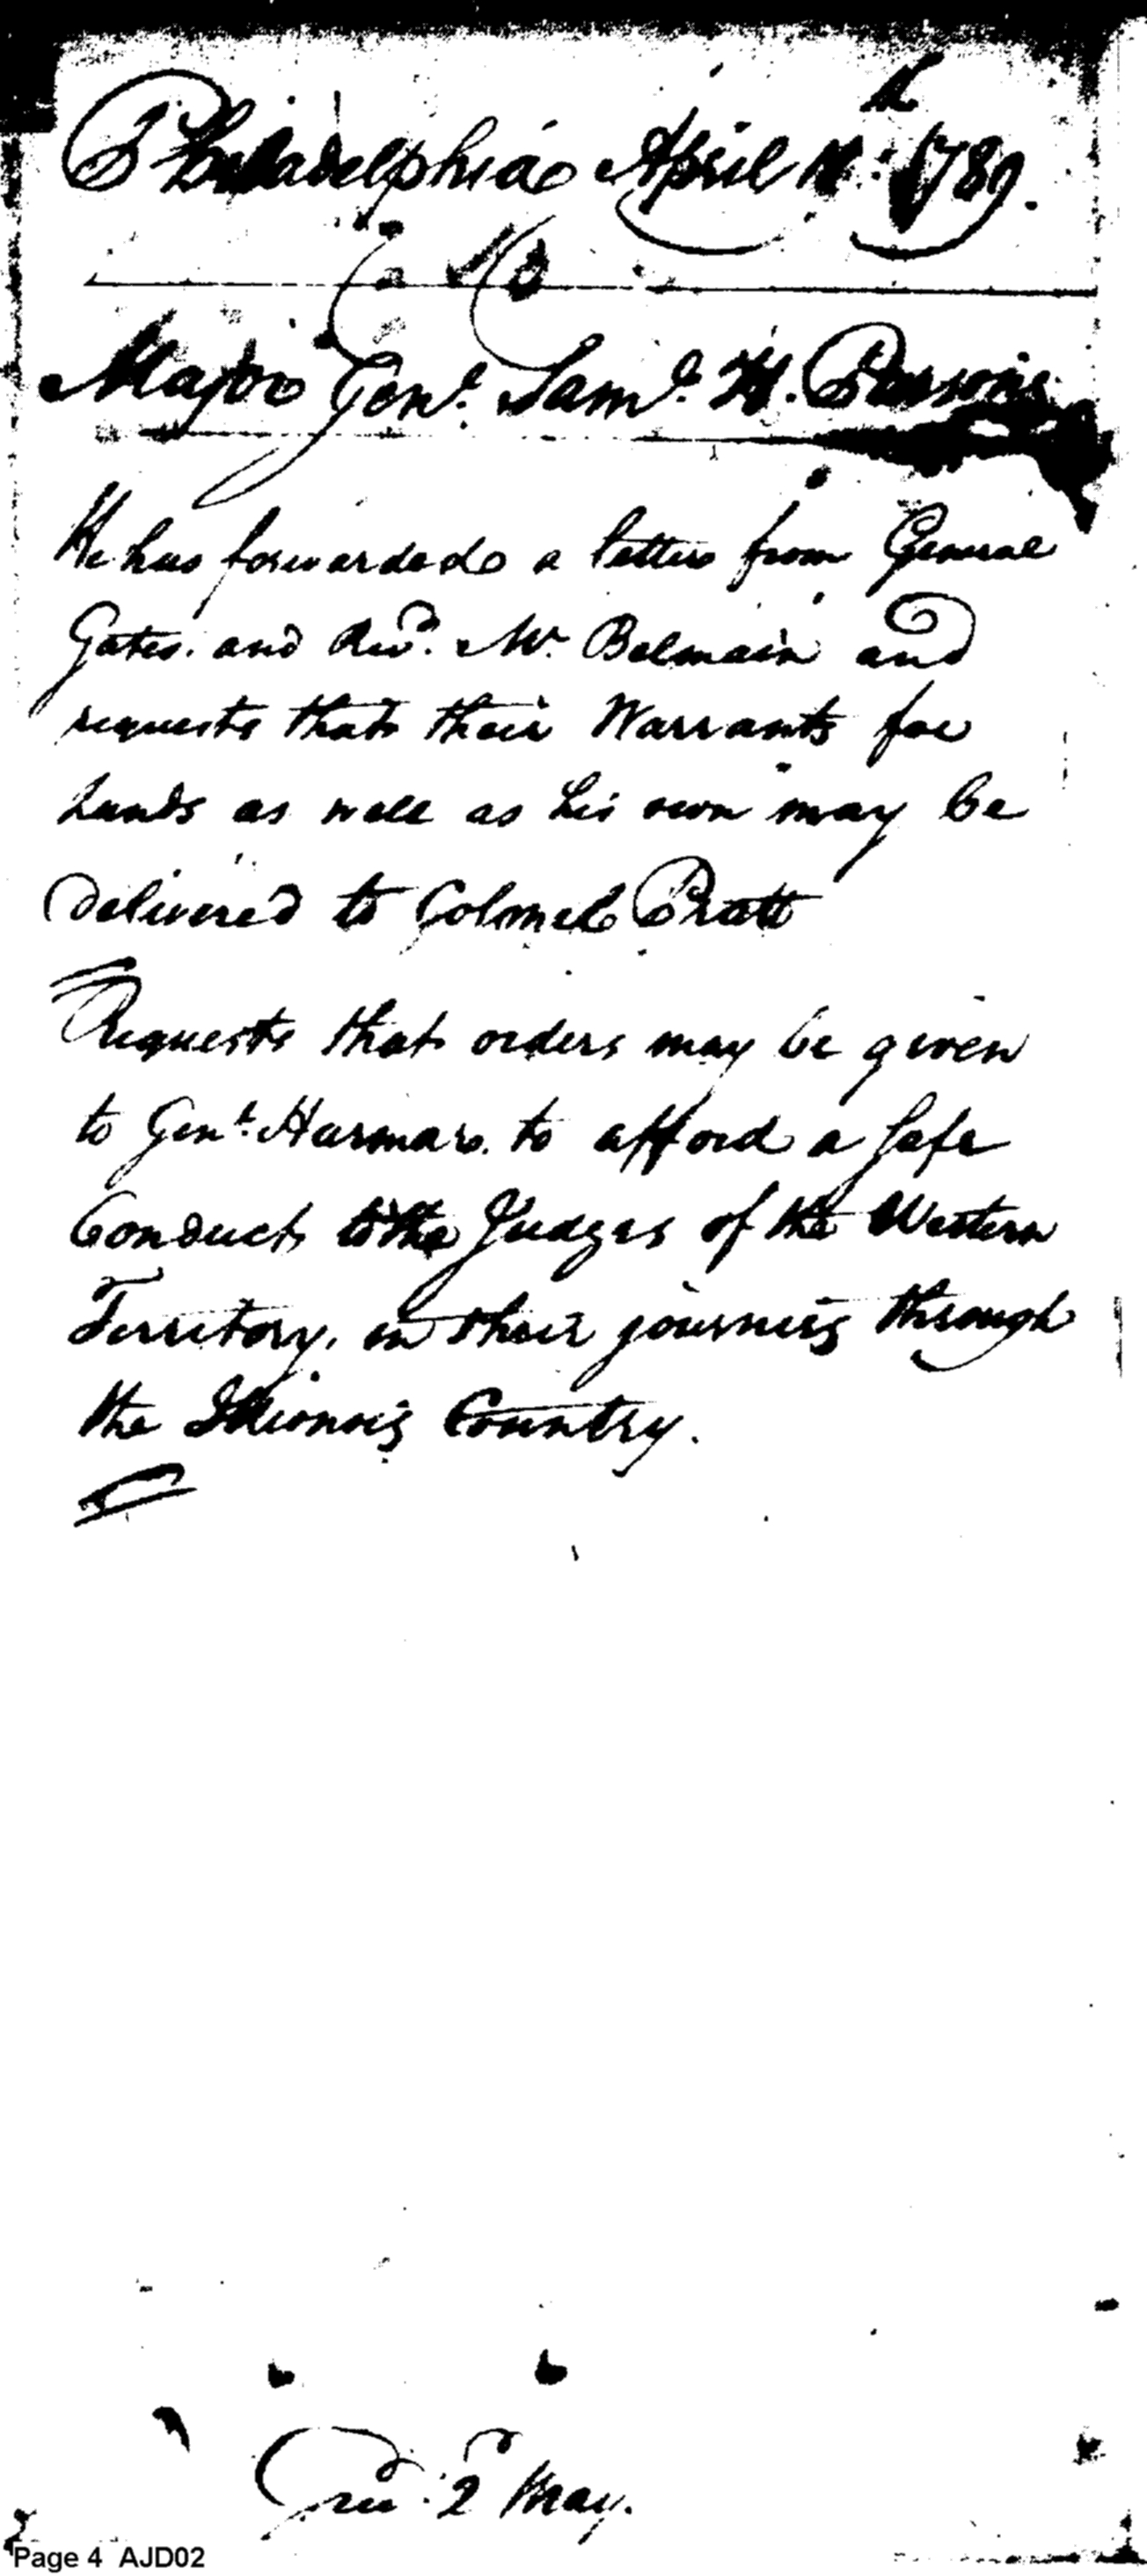 Philadelphia April 11th: 1789.
Major Genl. Saml. H. Parsons
He has forwarded a letter from General
Gates. and Revd. Mr. Belmain and
requests that their Warrants for
Lands as well as his own may be
delivered to Colonel Pratt
Requests that orders may be given
to Genl. Harmar. to afford a safe
Conduct to the Judges of the Western
Territory, in their journeys through
the Illionois Country.
2 May.
Page 4 AJD02